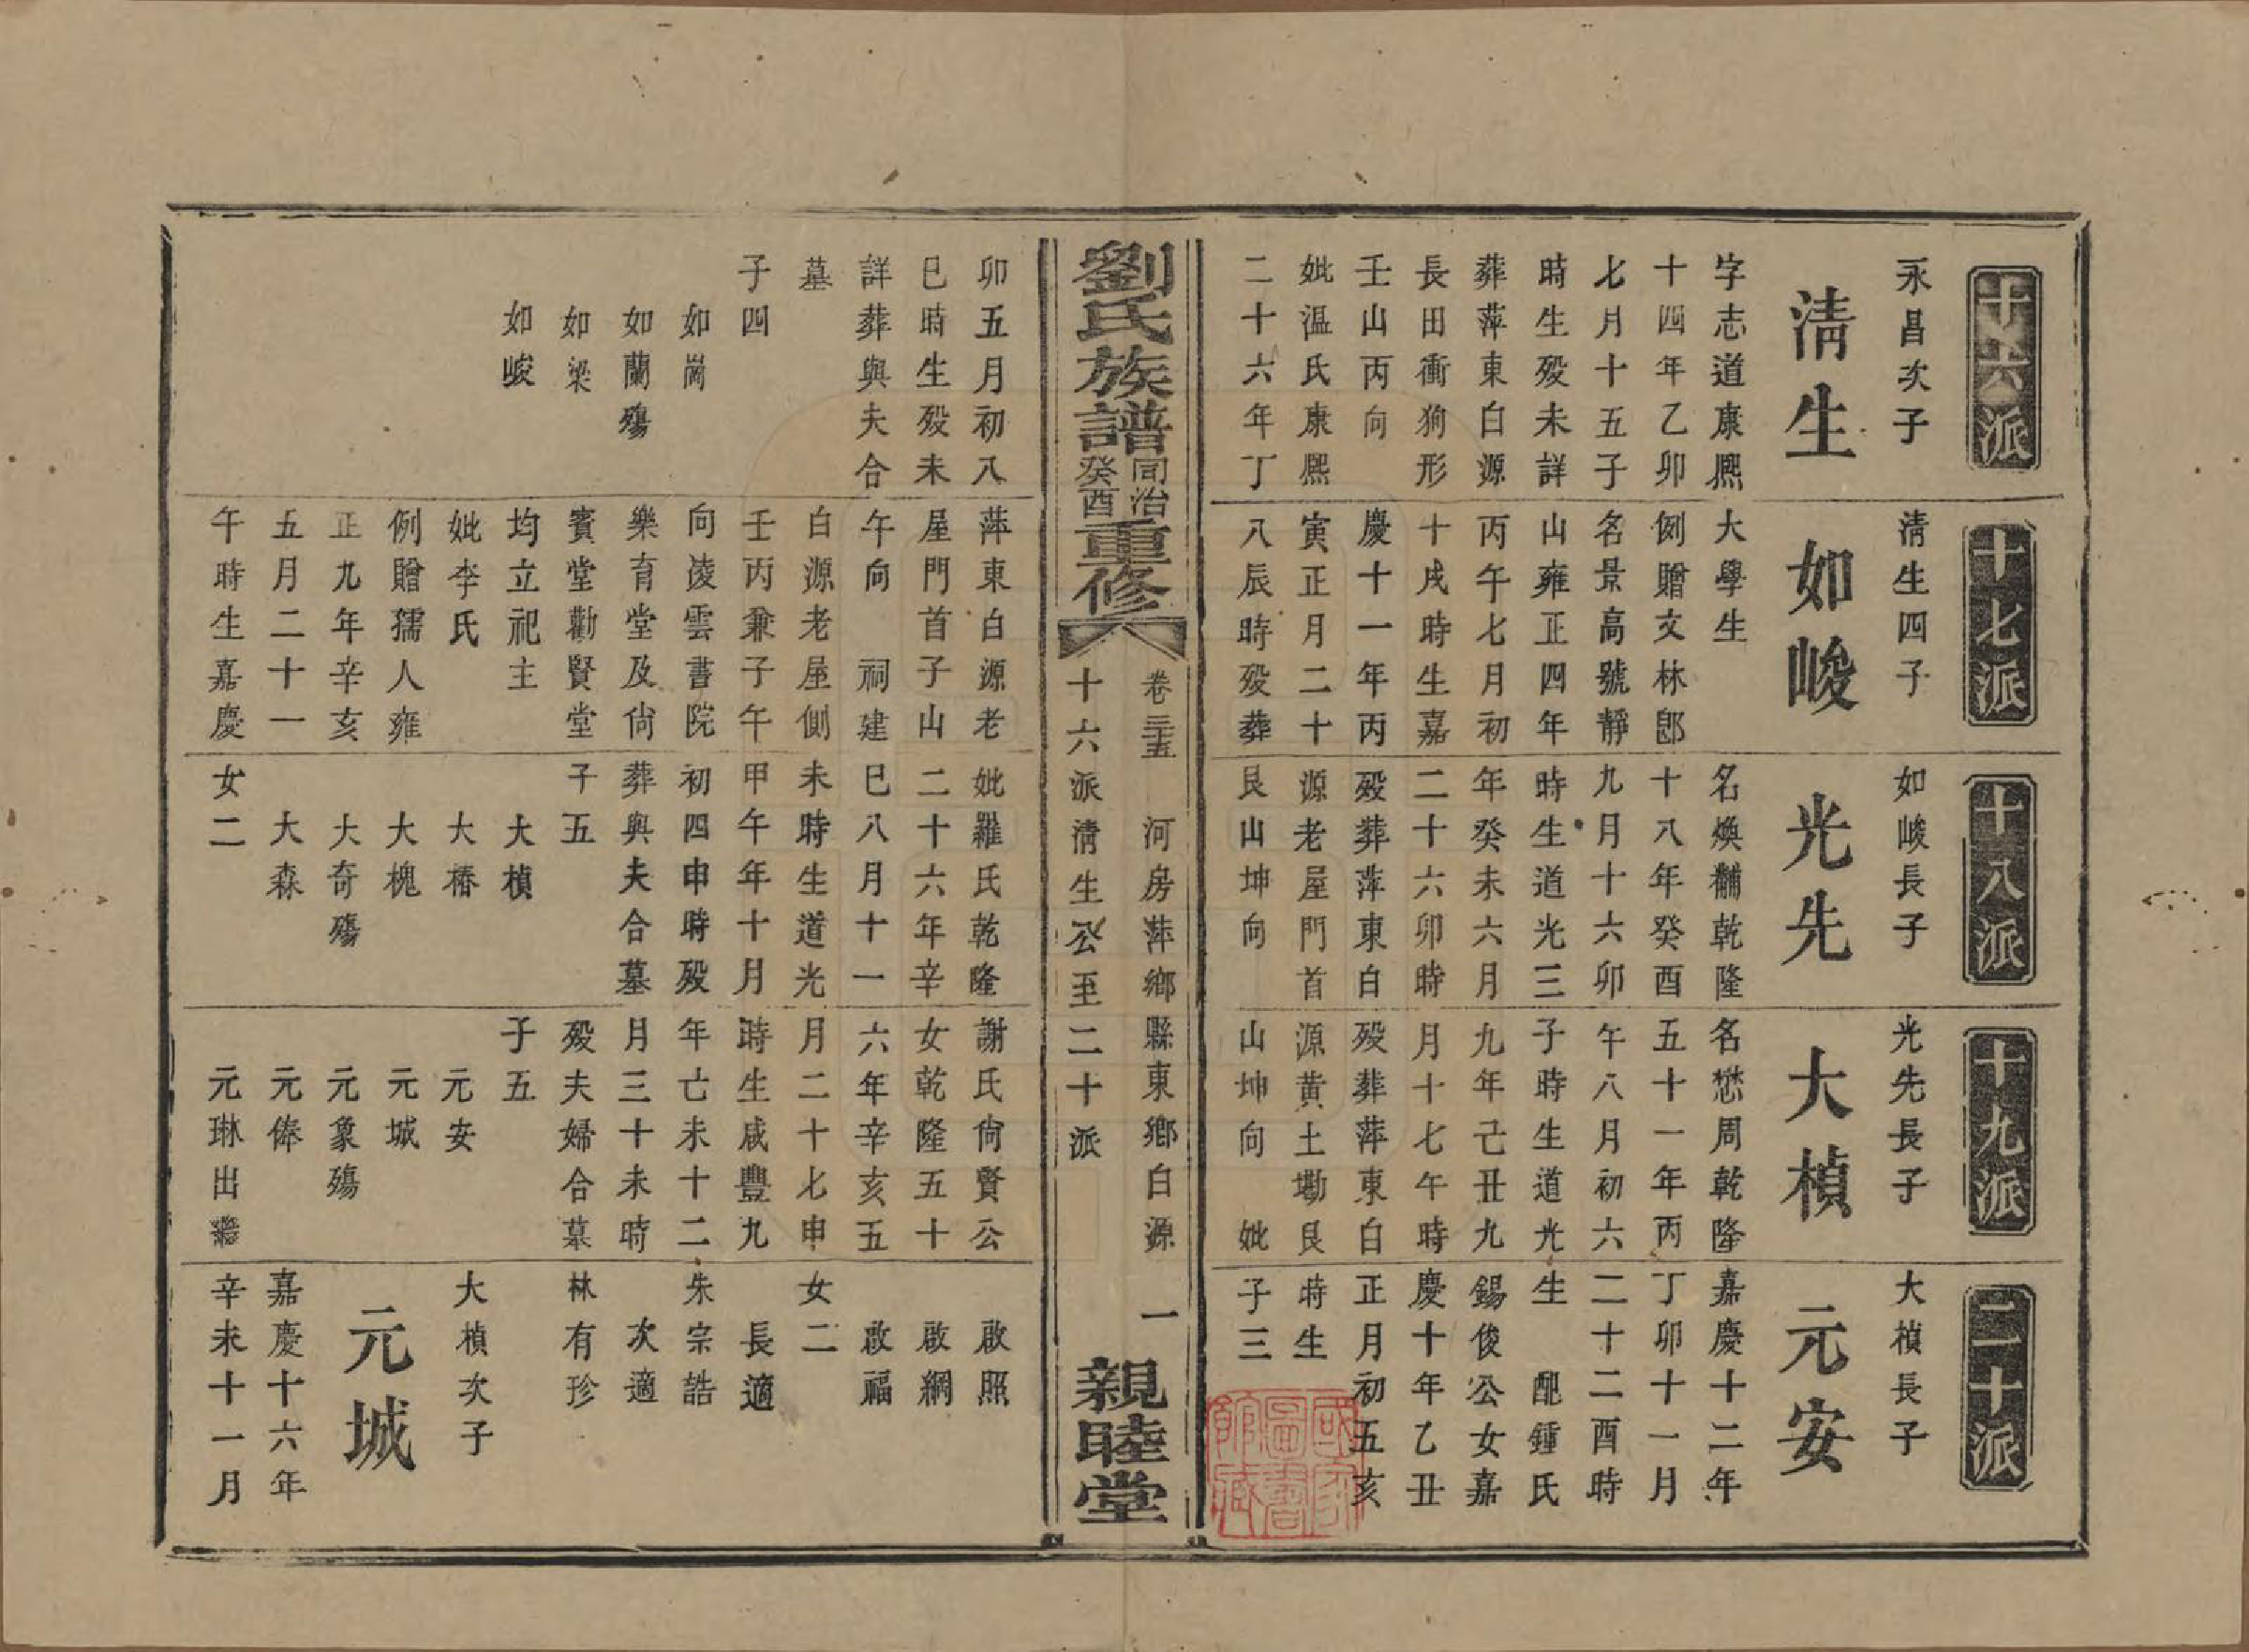 十六派
永昌次子
清生
字志道康熙
十四年乙卯
七月十五子
時生殁未詳
葬萍東白源
長田衝狗形
壬山丙向
妣温氏康熙
二十六年丁
十七派
清生四子
如峻
大學生
例贈文林郎
名景高號靜
山雍正四年
丙午七月初
十戌時生嘉
慶十一年丙
寅正月二十
八辰時殁葬
十八派
如峻長子
光先
名煥黼乾隆
十八年癸酉
九月十六卯
時生道光三
年癸未六月
二十六卯時
殁葬萍東白
源老屋門首
艮山坤向
十九派
光先長子
大楨
名懋周乾隆
五十一年丙
午八月初六
子時生道光
九年己丑九
月十七午時
殁葬萍東白
源黃土墈艮
山坤向 妣
二十派
大楨長子
元安
嘉慶十二年
丁卯十一月
二十二酉時
生 配鍾氏
錫俊公女嘉
慶十年乙丑
正月初五亥
時生
子三
劉氏族譜 同治癸酉 重修
卷三十五 河房萍鄉縣東鄉白源 一
十六派清生公至二十派
親睦堂
卯五月初八
巳時生殁未
詳葬與夫合
墓
子四
如崗
如蘭殤
如梁
如峻
萍東白源老
屋門首子山
午向 祠建
白源老屋側
壬丙兼子午
向凌雲書院
樂育堂及尚
賓堂勸賢堂
均立祀主
妣李氏
例贈孺人雍
正九年辛亥
五月二十一
午時生嘉慶
妣羅氏乾隆
二十六年辛
巳八月十一
未時生道光
甲午年十月
初四申時殁
葬與夫合墓
子五
大楨
大椿
大槐
大奇殤
大森
女二
謝氏尚賢公
女乾隆五十
六年辛亥五
月二十七申
時生咸豐九
年亡未十二
月三十未時
殁夫婦合墓
子五
元安
元城
元象殤
元俸
元琳出繼
啟照
啟網
啟福
女二
長適
朱宗誥
次適
林有珍
大楨次子
元城
嘉慶十六年
辛未十一月
國家圖書館藏